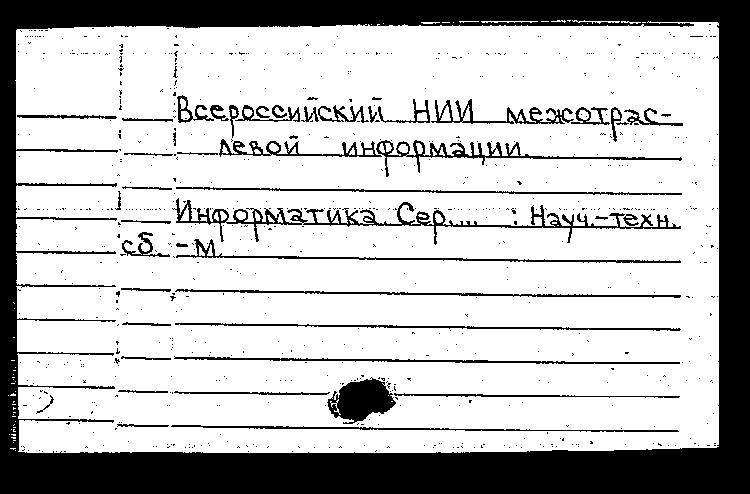 Всероссийский НИИ межотрас-
левой информации.
Информатика. Сер. ... : Науч.-техн.
сб. - М.